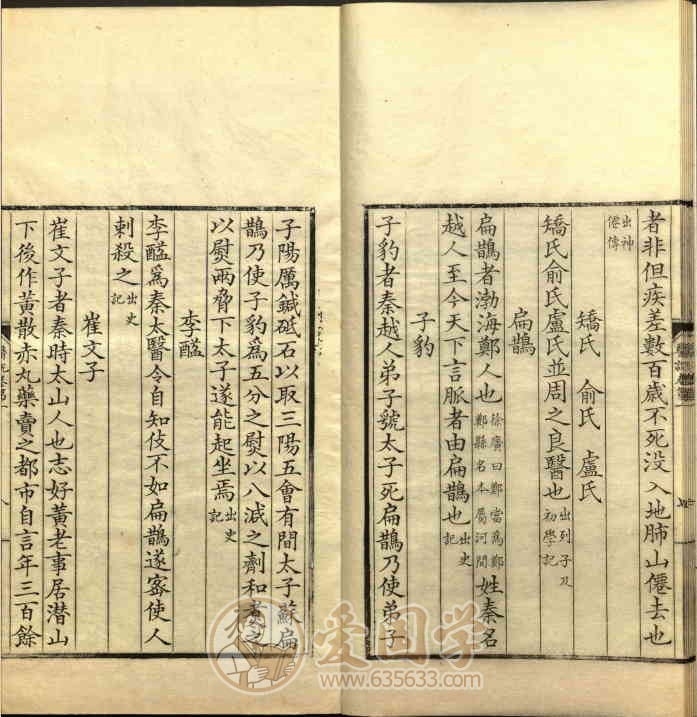 者非但疾差數百歲不死没入地肺山僊去也
出神
僊傳
矯氏 俞氏 盧氏
矯氏俞氏盧氏並周之良醫也出列子及
初學記
扁鵲
扁鵲者渤海鄭人也徐廣曰鄭當爲鄚
鄚縣名本屬河間姓秦名
越人至今天下言脈者由扁鵲也出史
記
子豹
子豹者秦越人弟子號太子死扁鵲乃使弟子
子陽厲鍼砥石以取三陽五會有間太子蘇扁
鵲乃使子豹爲五分之熨以八減之劑和煑之
以熨兩脅下太子遂能起坐焉出史
記
李醯
李醯爲秦太醫令自知伎不如扁鵲遂密使人
刺殺之出史
記
崔文子
崔文子者秦時太山人也志好黃老事居潛山
下後作黃散赤丸藥賣之都市自言年三百餘
八
爱国学
www.635633.com